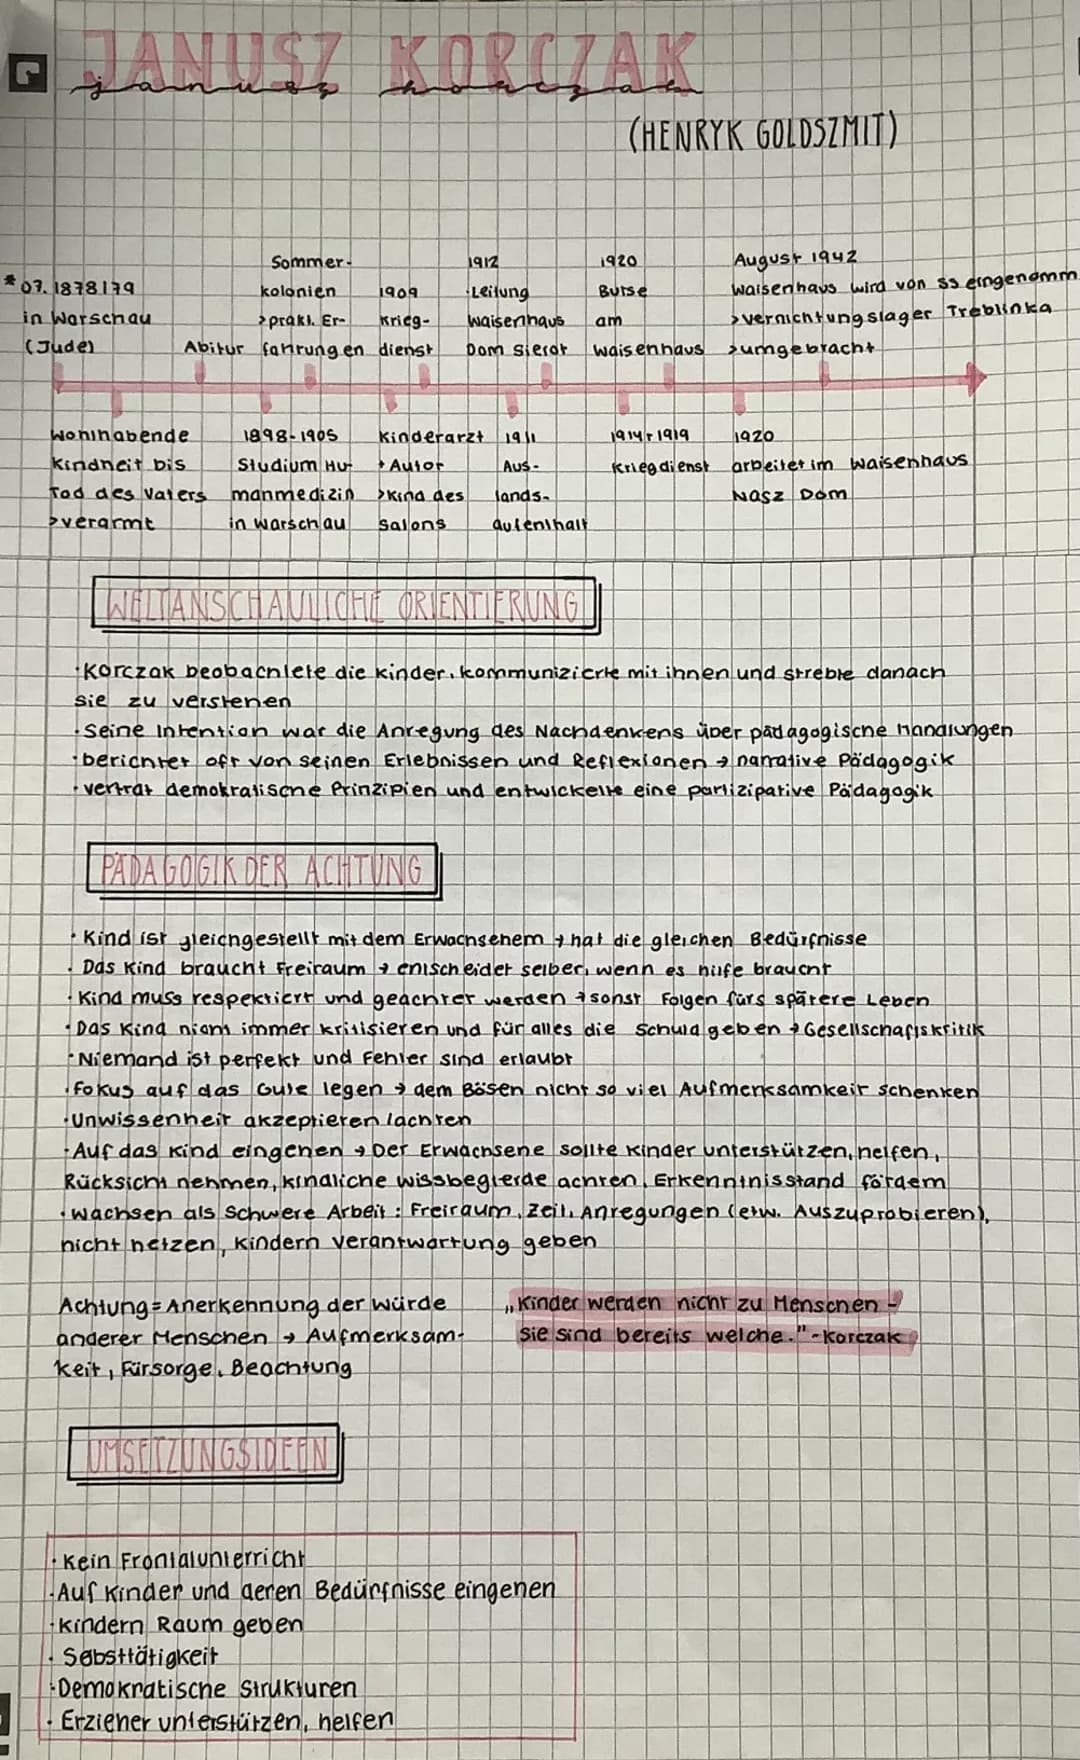 JANUSZ KORCZAK
janusz korczak
(HENRYK GOLDSZMIT)
Sommer- 1912 1920 August 1942
*07.1878179 kolonien 1909 ·Leitung Burse Waisenhaus wird von SS eingenomm
in Warschau >prakt. Er- Krieg- Waisenhaus am >vernichtungslager Treblinka
(Jude) Abitur fahrungen dienst Dom Sierot Waisenhaus >umgebracht
Wohlhabende 1898-1905 Kinderarzt 1911 1914+1919 1920
Kindheit bis Studium Hu- + Autor Aus- Kriegdienst arbeitet im Waisenhaus
Tod des Vaters manmedizin >Kind des lands- Nasz Dom
>verarmt in Warschau Salons aufenthalt
WELTANSCHAULICHE ORIENTIERUNG
·Korczak beobachtete die Kinder, kommunizierte mit ihnen und strebte danach
sie zu verstehen
·Seine Intention war die Anregung des Nachdenkens über pädagogische Handlungen
·berichtet oft von seinen Erlebnissen und Reflexionen → narrative Pädagogik
·vertrat demokratische Prinzipien und entwickelte eine partizipative Pädagogik
PÄDAGOGIK DER ACHTUNG
·Kind ist gleichgestellt mit dem Erwachsenem → hat die gleichen Bedürfnisse
·Das Kind braucht Freiraum → entscheidet selber, wenn es hilfe braucht
·Kind muss respektiert und geachtet werden → sonst Folgen fürs spätere Leben
·Das Kind nicht immer kritisieren und für alles die Schuld geben → Gesellschaftskritik
·Niemand ist perfekt und Fehler sind erlaubt
·Fokus auf das Gute legen → dem Bösen nicht so viel Aufmerksamkeit schenken
·Unwissenheit akzeptieren/achten
·Auf das Kind eingehen → Der Erwachsene sollte Kinder unterstützen, helfen,
Rücksicht nehmen, kindliche wissbegierde achten, Erkenntnisstand fördern
·Wachsen als schwere Arbeit: Freiraum, Zeit, Anregungen (etw. Auszuprobieren),
nicht hetzen, Kindern Verantwortung geben
Achtung = Anerkennung der Würde
anderer Menschen → Aufmerksam-
keit, Fürsorge, Beachtung
„Kinder werden nicht zu Menschen -
sie sind bereits welche." -Korczak
UMSETZUNGSIDEEN
·Kein Frontalunterricht
·Auf Kinder und deren Bedürfnisse eingehen
·Kindern Raum geben
·Sebsttätigkeit
·Demokratische Strukturen
·Erzieher unterstützen, helfen